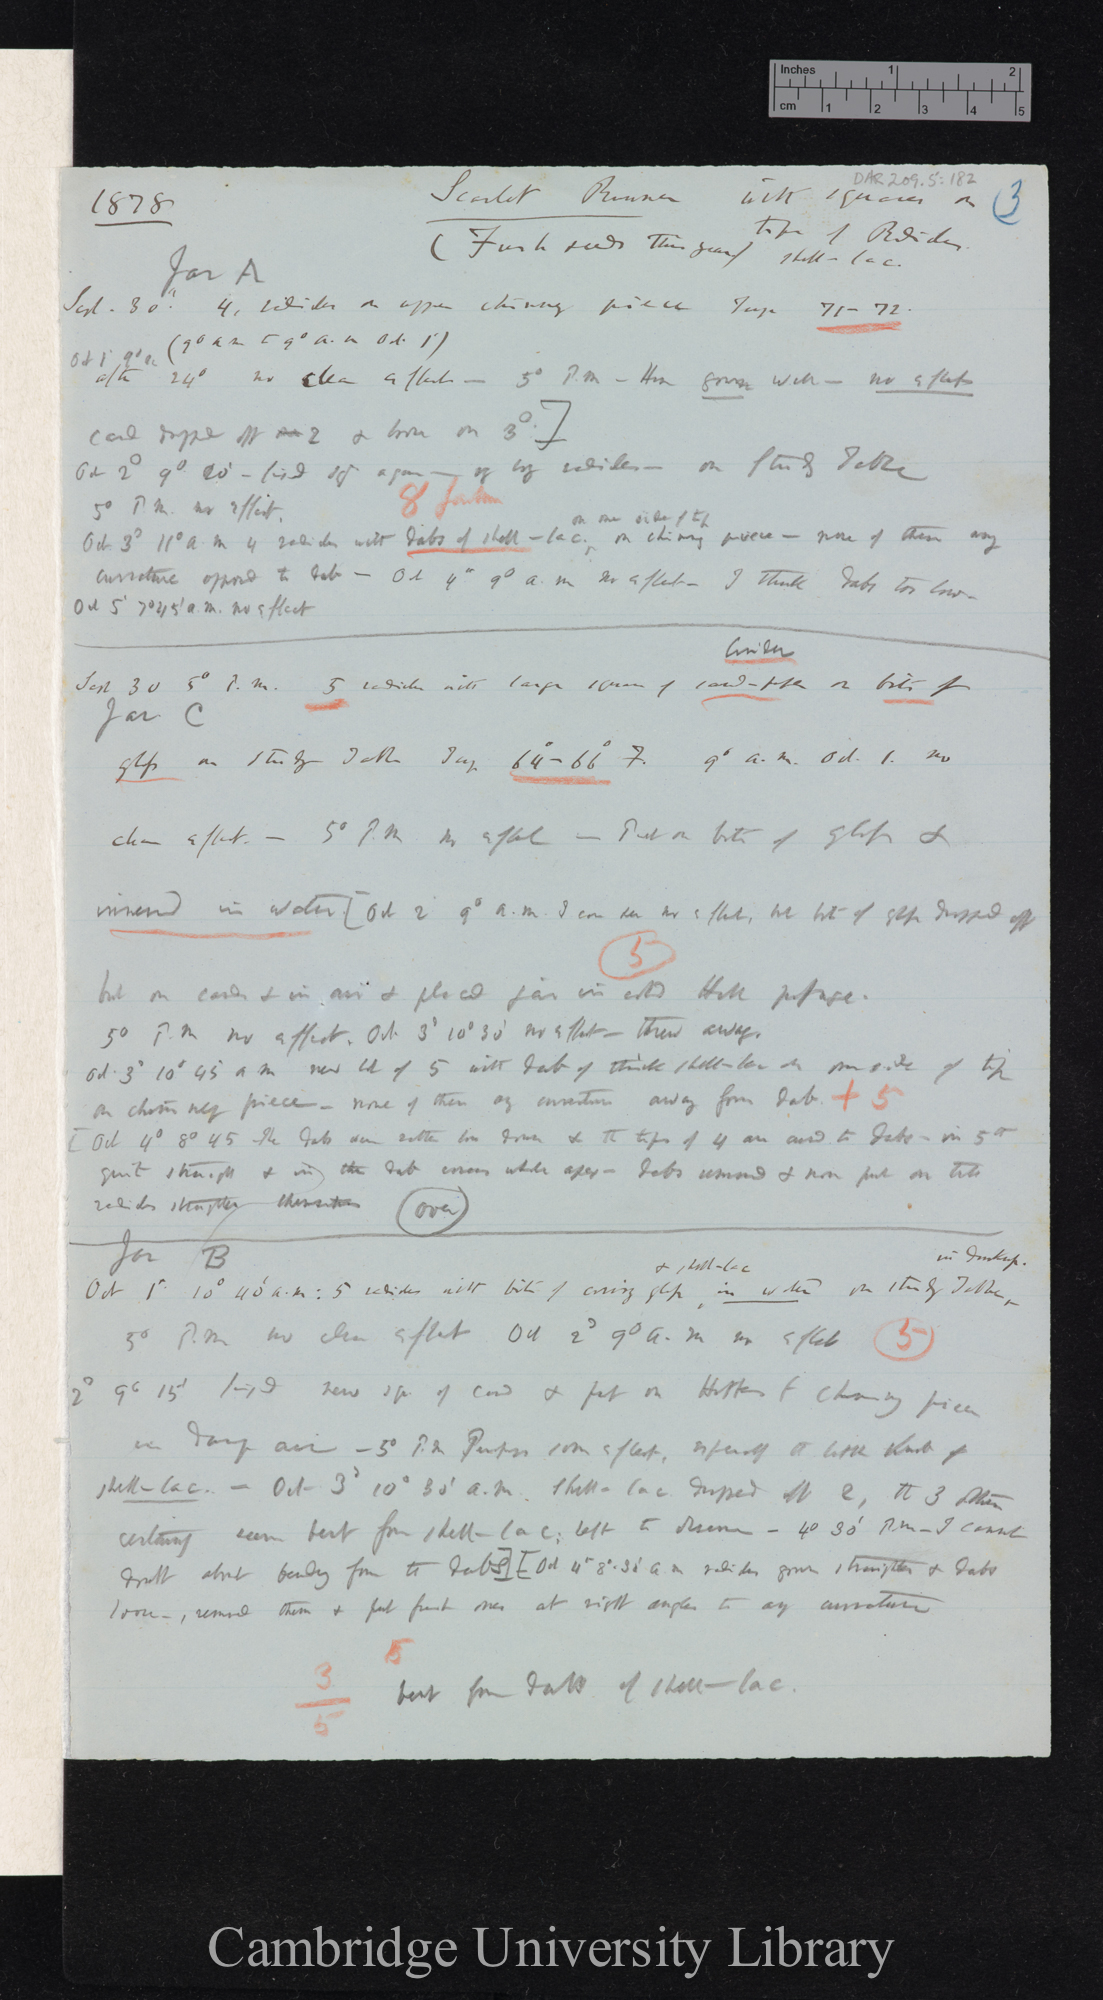 Inches 1 2
cm 1 2 3 4 5
DAR 209.5: 182
3
1878
Scarlet Runner with squares on
tips of Radicles
(Fresh seeds this year) shell-lac.
Jar A
Sept. 30° 4, radicles on upper chimney piece Temp 71-72.
(9° a.m to 9° a.m Oct. 1)
Oct 1 9°
after 24° no clear effect — 5° P.m — Have grown well — no effect
card dropped off 2 & loose on 3°.]
Oct 2° 9° 20' — again — radicles — on Study Table
5° P.m. no effect.
8
on one side of tip
Oct 3° 11° a.m 4 radicles with dabs of shell-lac, on chimney piece — none of them any
curvature opposed to dab — Oct 4° 9° a.m no effect — I think dabs too low —
Oct 5° 7°45' a.m. no effect
Sept 30 5° P.m. 5 radicles with large square of on bits of
Jar C
glass on Study Table Temp 64°-66° F. 9° a.m. Oct. 1. no
clear effect. — 5° P.m no effect — Put on bits of glass &
immersed in water [Oct 2 9° a.m. I can see no effect, but bits of glass dropped off
5
put on cards & in air & placed jar in cold Hall passage.
5° P.m no effect. Oct 3° 10° 30' no effect — threw away.
Oct. 3° 10° 45' a m new lot of 5 with dab of thick shell-lac on one side of tip
on chimney piece — none of them any curvature away from dab. + 5
[Oct 4° 8° 45 the dabs seem rather low down & the tips of 4 are to dabs — in 5th
quite straight & in dab covers whole apex — dabs removed & now put on
radicles
over
Jar B
& shell-lac in
Oct 1° 10° 40' a.m: 5 radicles with bits of glass, in water on Study Table,
5° P.m no clear effect Oct 2° 9° a.m no effect 5
2° 9° 15' fixed new sqs of card & put on Hottest Chimney piece
in damp air — 5° P.m Perhaps some effect, especially of
shell-lac. — Oct. 3° 10° 30' a.m. shell-lac dropped off 2, the 3 others
certainly seem bent from shell-lac; left to observe — 4° 30' P.m — I cannot
doubt about bending from the dabs] [Oct 4° 8° 30' a m radicles grown straighter & dabs
loose —, removed them & put fresh ones at right angles to any curvature
5
3
5
bent from dabs of shell-lac.
Cambridge University Library